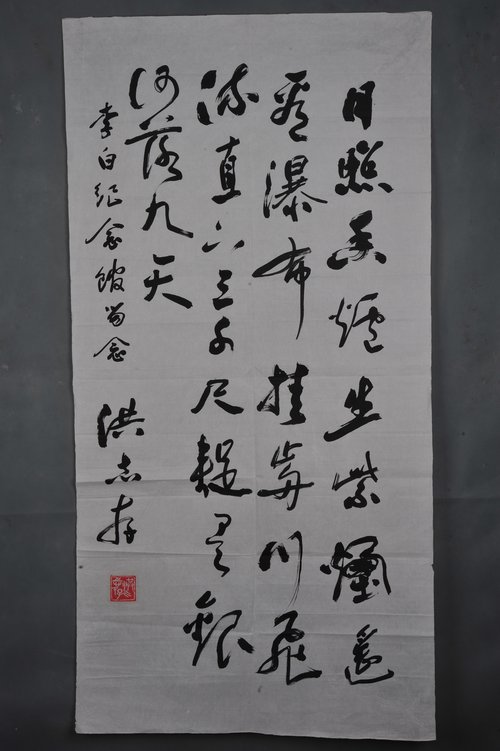 日照香爐生紫煙遥
看瀑布挂前川飛
流直下三千尺疑是銀
河落九天
李白纪念館留念
洪志存